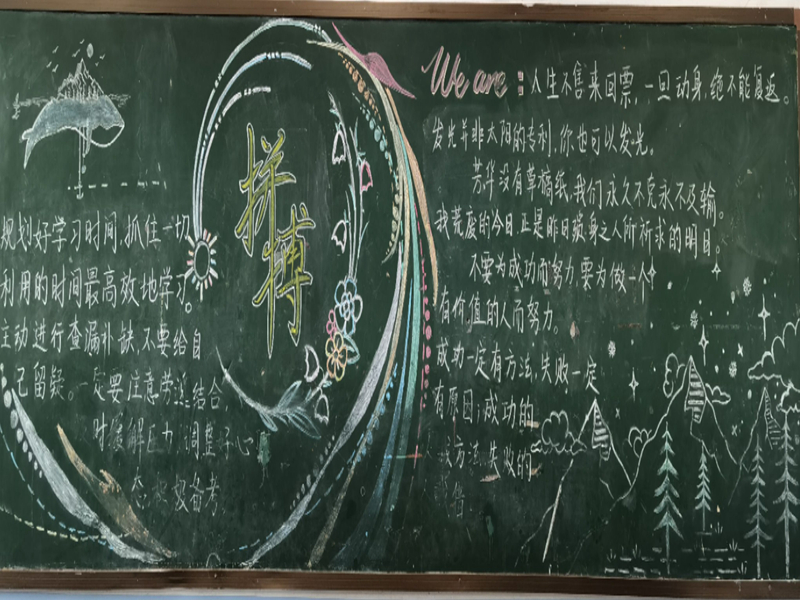 规划好学习时间,抓住一切
利用的时间最高效地学习。
主动进行查漏补缺,不要给自
己留疑。一定要注意劳逸结合,
时缓解压力,调整好心
态,积极备考
拼搏
We are:人生不售来回票,一旦动身,绝不能复返。
发光并非太阳的专利,你也可以发光。
芳华没有草稿纸,我们永久不克永不及输。
我荒废的今日,正是昨日殒身之人所祈求的明日。
不要为成功而努力,要为做一个
有价值的人而努力。
成功一定有方法,失败一定
有原因;成功的
方法,失败的